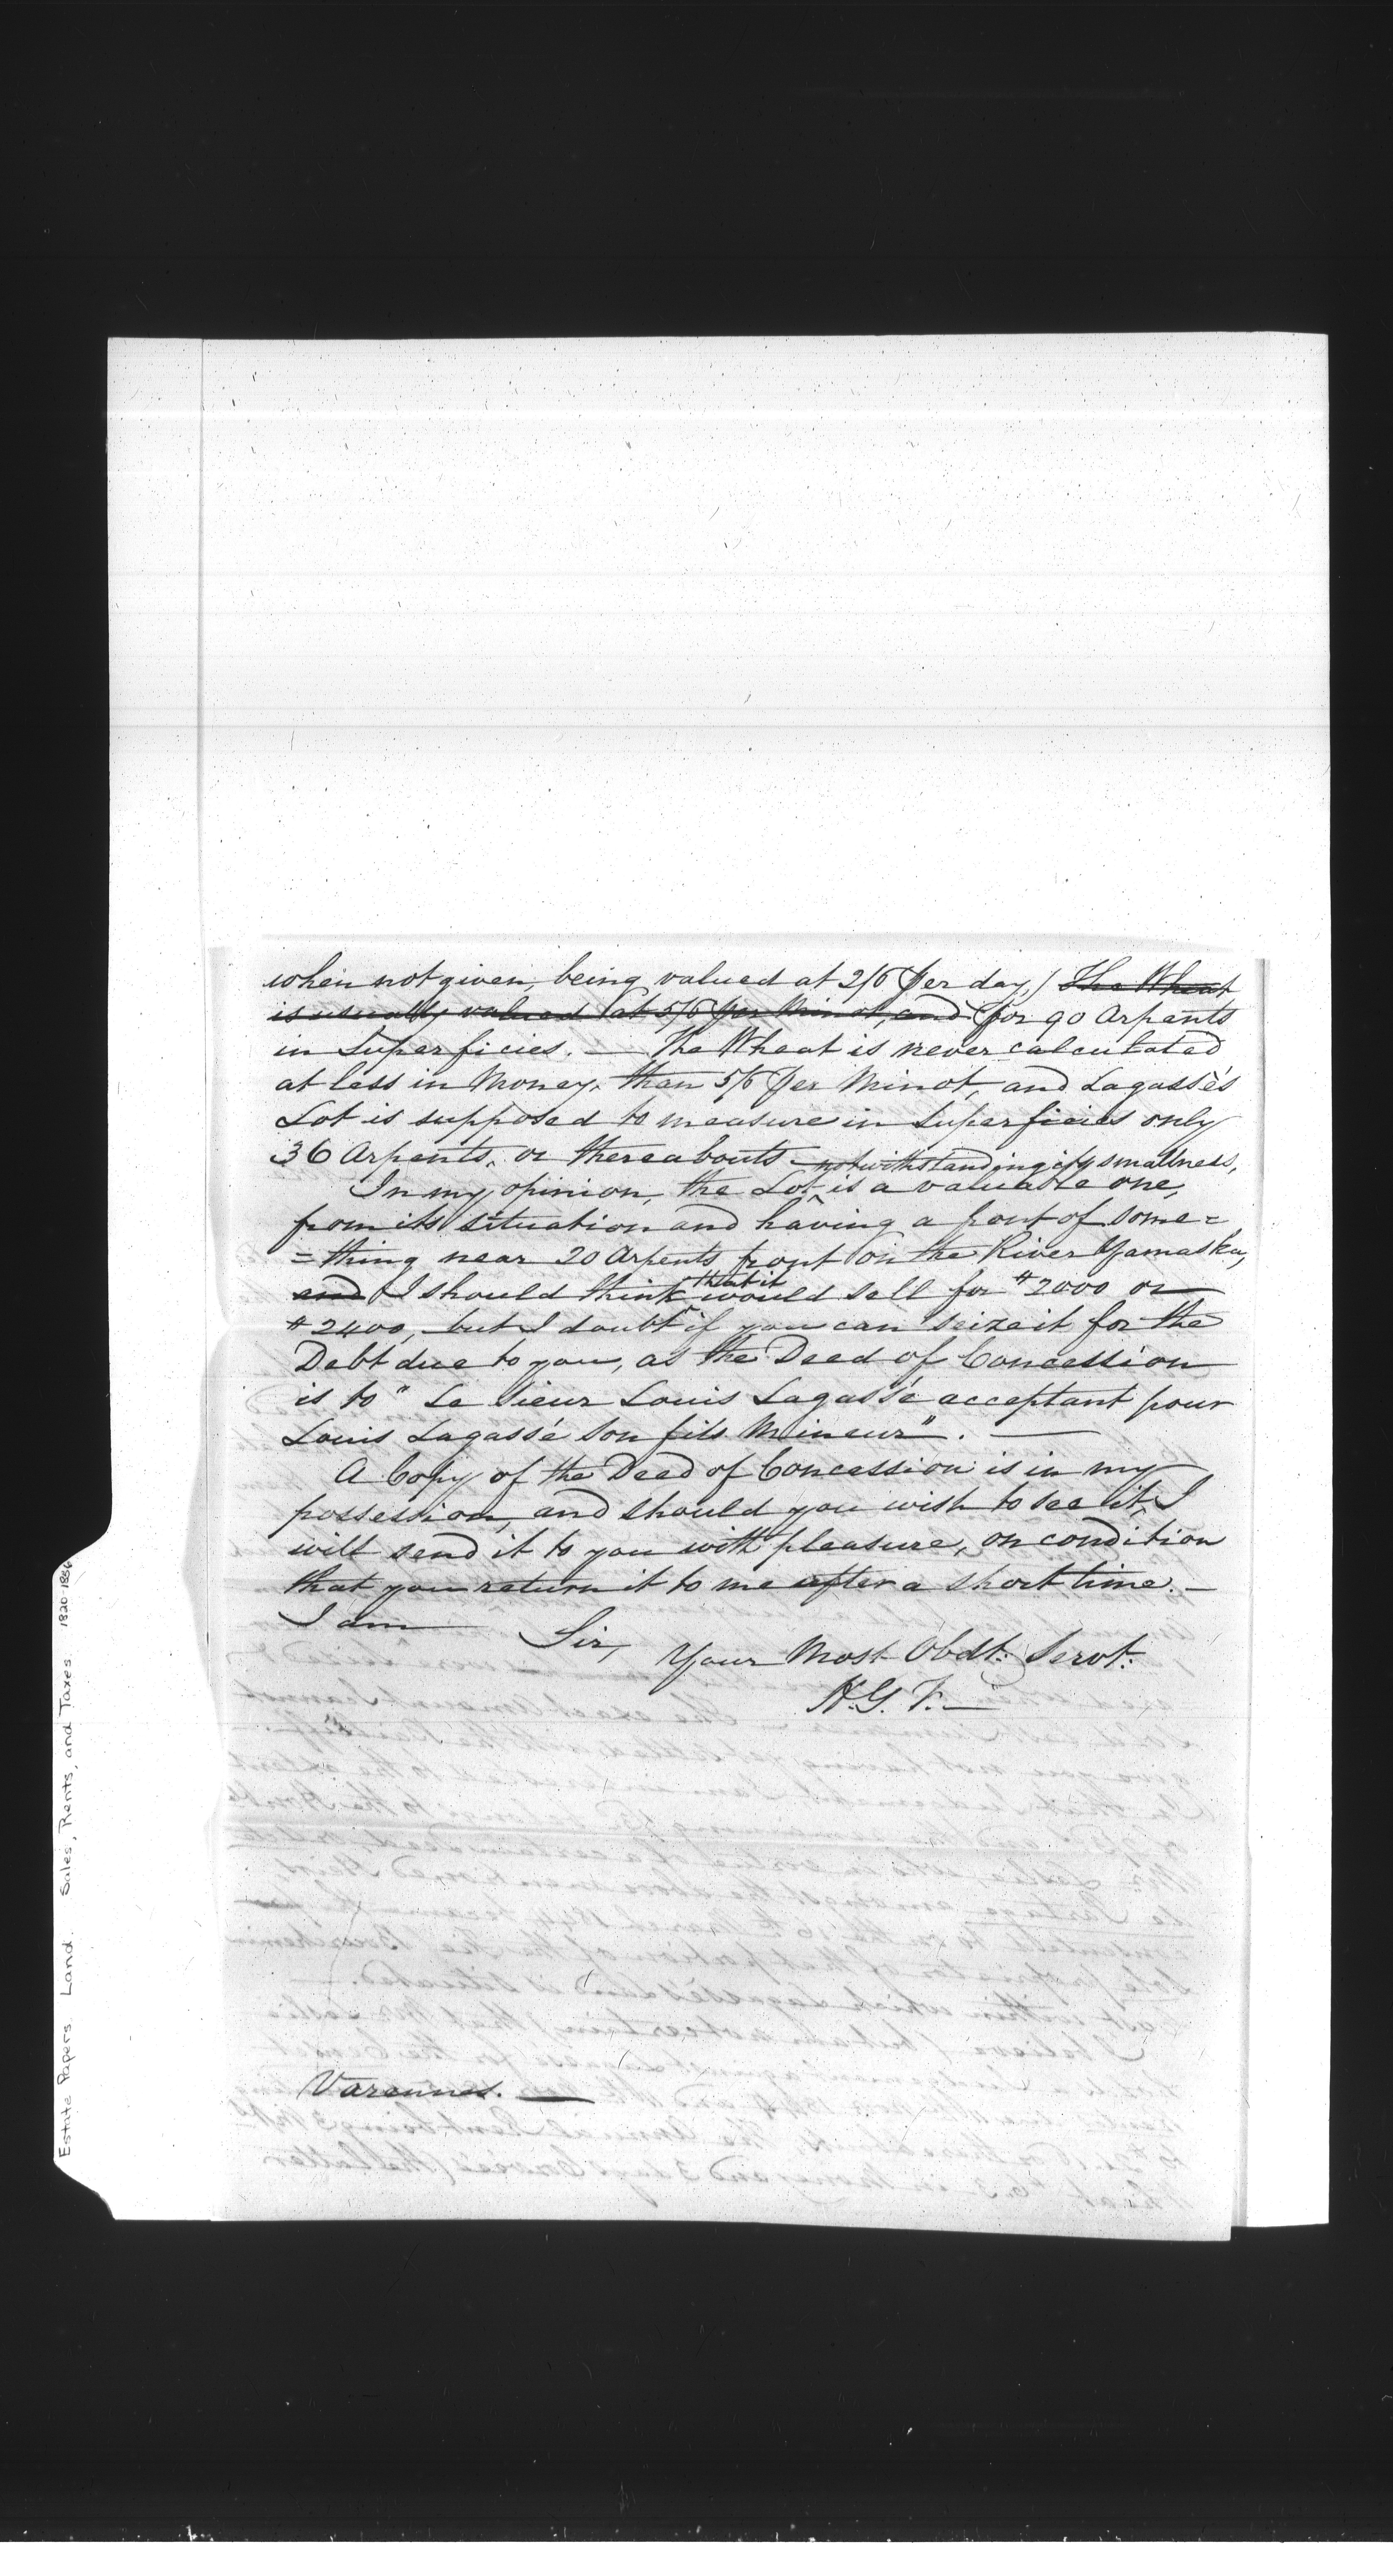 when not given, being valued at 2/6 per day) The Wheat
is usually valued at 5/6 per Minot, and for 90 Arpents
in Superficies. — The Wheat is never calculated
at less in Money, than 5/6 per Minot, and Lagassé's
Lot is supposed to measure in Superficies only
36 Arpents, or thereabouts –
notwithstanding its smallness,
In my opinion, the Lot ^ is a valuable one,
from its situation and having a front of some=
=thing near 20 Arpents front on the River Yamaska,
that it
and I should think ^ would sell for $2000 or
$2400, but I doubt if you can seize it for the
Debt due to you, as the Deed of Concession
is to "Le Sieur Louis Lagassé acceptant pour
Louis Lagassé son fils Mineur". —
A Copy of the Deed of Concession is in my
possession, and should you wish to see it, I
will send it to you with pleasure, on condition
that you return it to me after a short time. —
I am Sir,
Your Most Obdt: Servt:
H. G. F. —
Varennes. —
Estate Papers Land. Sales, Rents, and Taxes 1820-1856